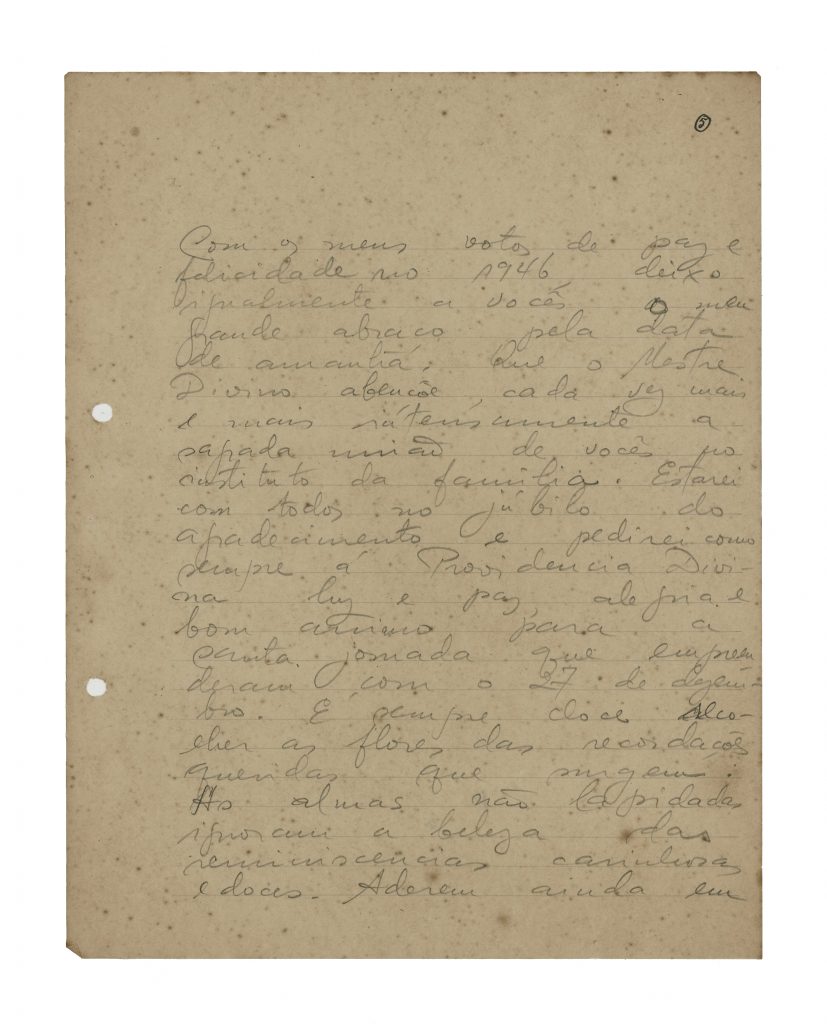 5
Com os meus votos de paz e
felicidade no 1946, deixo
igualmente a vocês o meu
grande abraço pela data
de amanhã. Que o Mestre
Divino abençõe, cada vez mais
e mais intensamente a
sagrada união de vocês no
instituto da família. Estarei
com todos no júbilo do
agradecimento e pedirei como
sempre á Providencia Divi-
na luz e paz, alegria e
bom animo para a
santa jornada que empreen
deram com o 27 de dezem-
bro. É sempre doce reco-
lher as flores das recordações
queridas que surgem.
As almas não lapidadas
ignoram a beleza das
reminiscencias carinhosas
e doces. Aderem ainda em